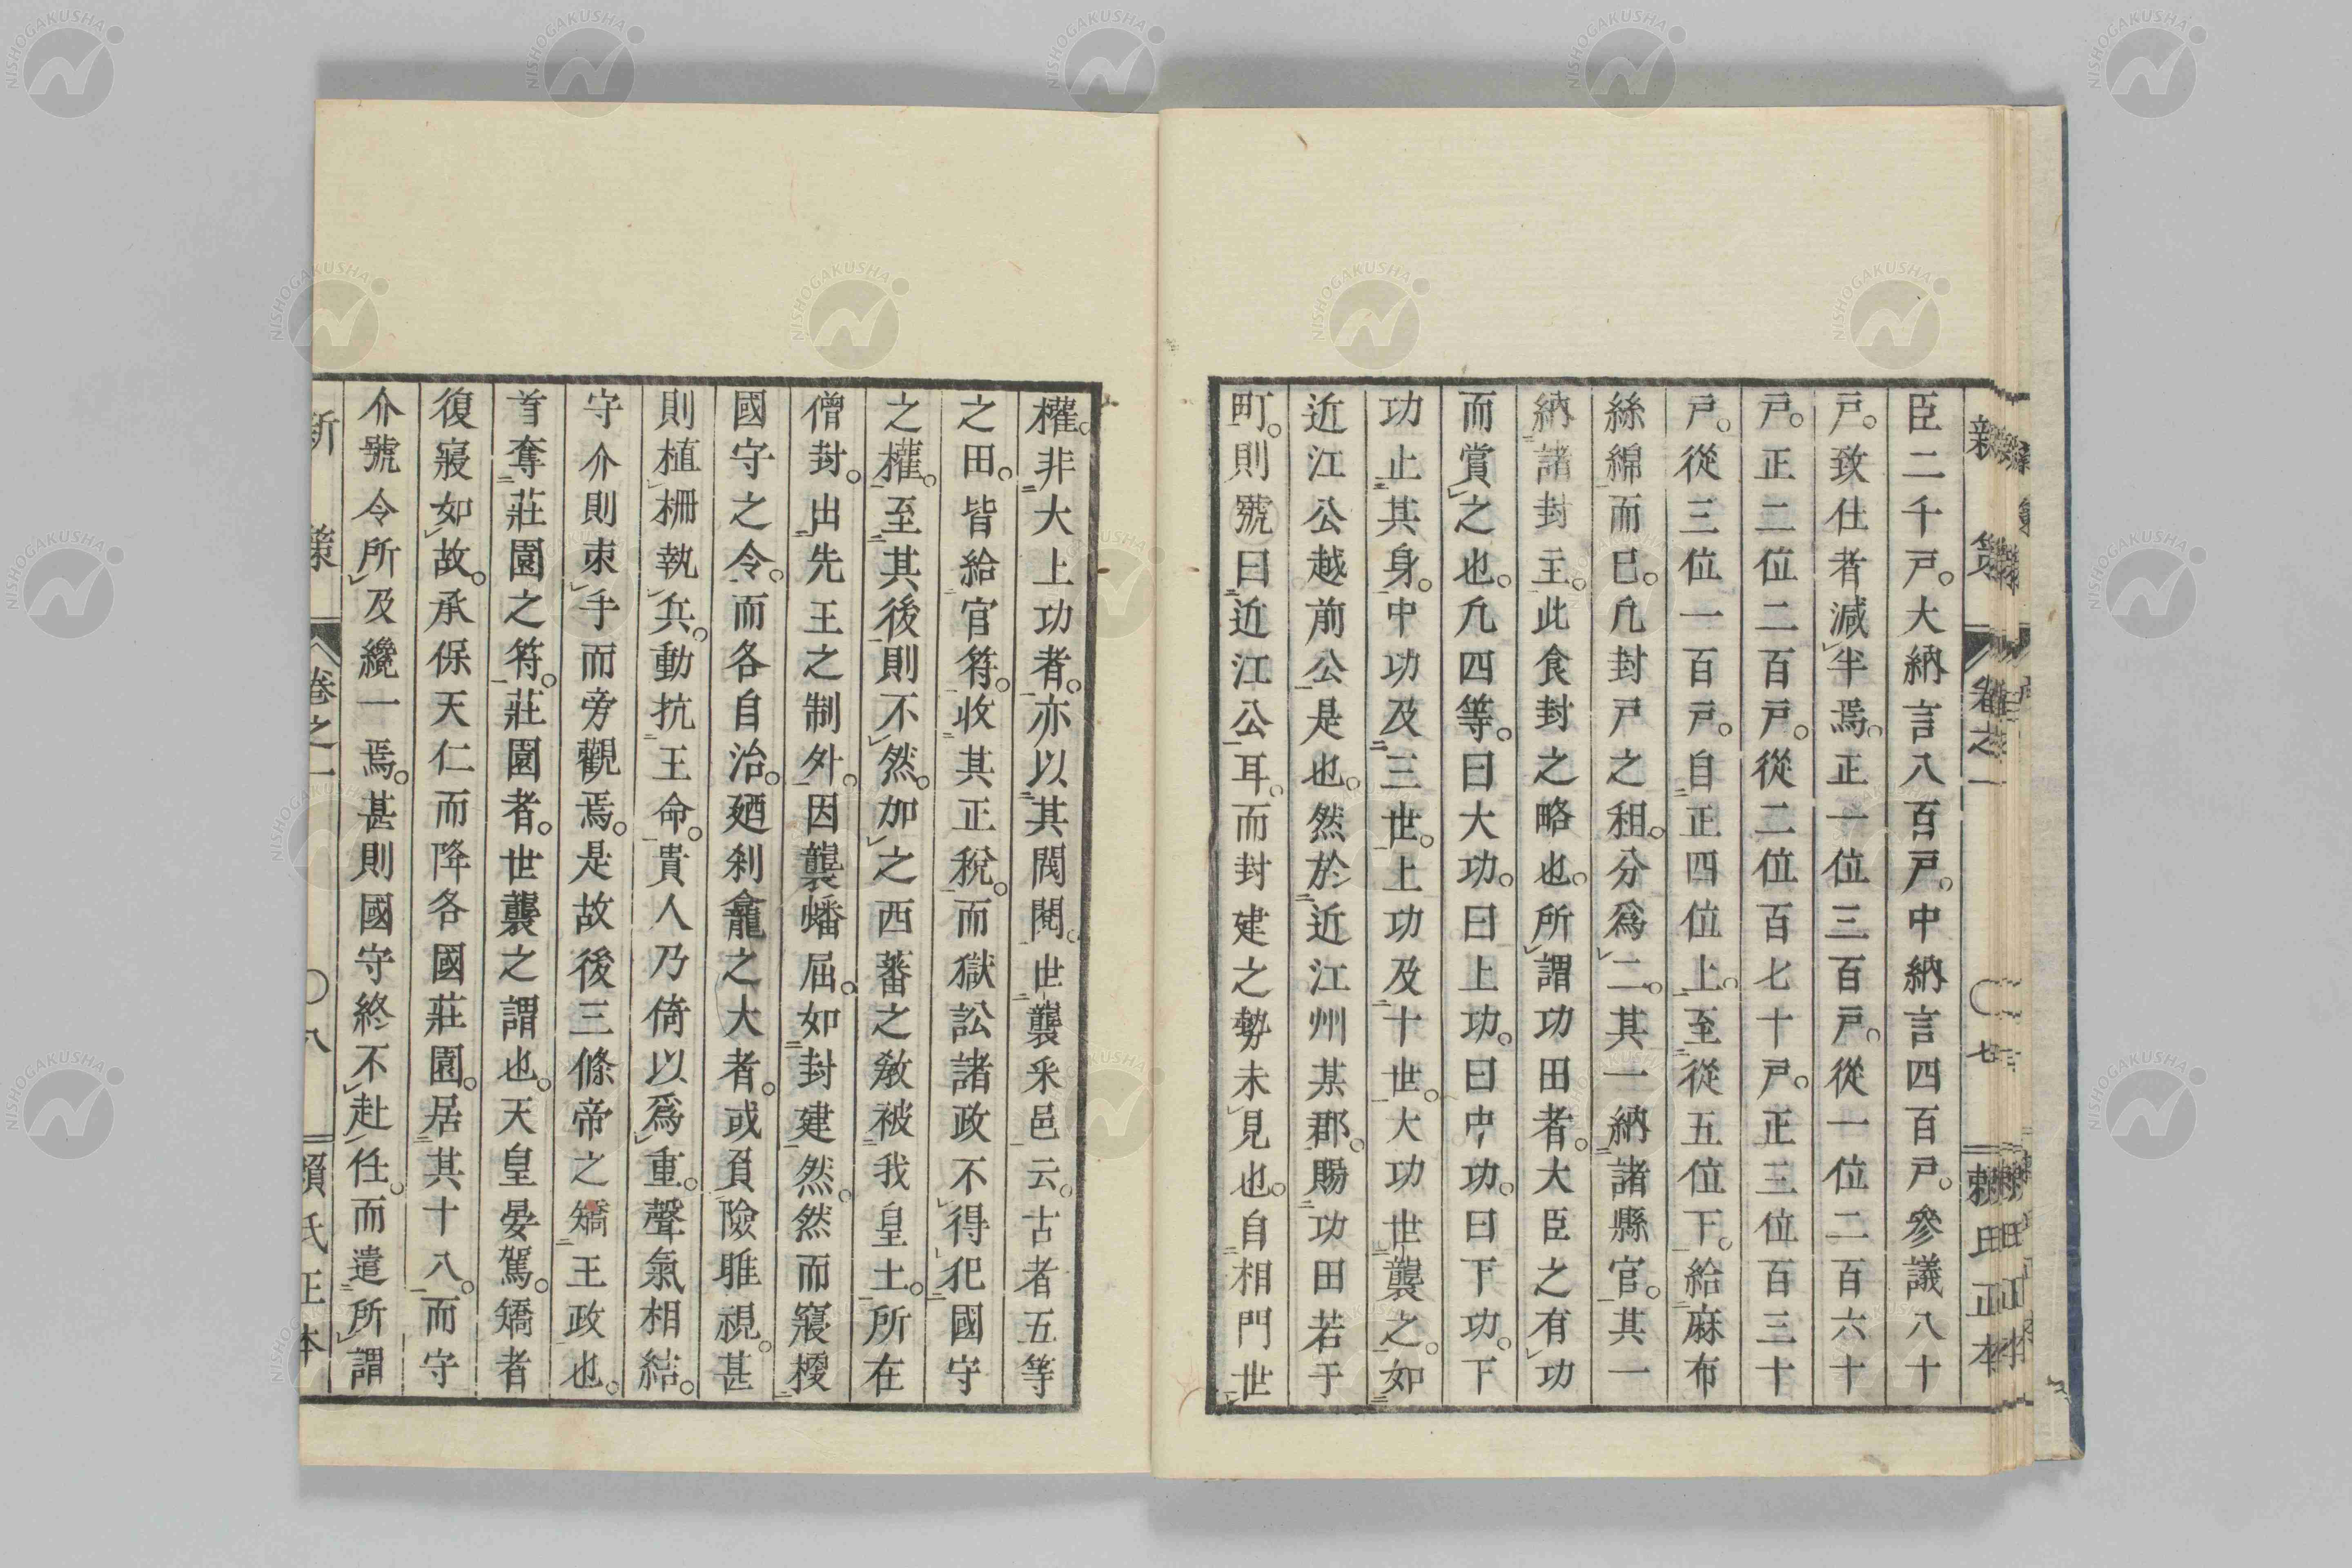 臣二千戸。大納言八百戸。中納言四百戸。參議八十
戸。致仕者減半焉。正一位三百戸。從一位二百六十
戸。正二位二百戸。從二位百七十戸。正三位百三十
戸。從三位一百戸。自正四位上。至從五位下。給麻布
絲綿而已。凡封戸之租。分爲二。其一納諸縣官。其一
納諸封主。此食封之略也。所謂功田者。大臣之有功
而賞之也。凡四等。曰大功。曰上功。曰中功。曰下功。下
功止其身。中功及三世。上功及十世。大功世襲之。如
近江公越前公是也。然於近江州某郡。賜功田若干
町。則號曰近江公耳。而封建之勢未見也。自相門世
權。非大上功者。亦以其閥閱。世襲采邑云。古者五等
之田。皆給官符。收其正稅。而獄訟諸政不得犯國守
之權。至其後則不然。加之西蕃之敎被我皇土。所在
僧封。出先王之制外。因襲蟠屈。如封建然。然而寢擾
國守之令。而各自治。廼刹龕之大者。或負險睢視。甚
則植柵執兵。動抗王命。貴人乃倚以爲重。聲氣相結。
守介則束手而旁觀焉。是故後三條帝之矯王政也。
首奪莊園之符。莊園者。世襲之謂也。天皇晏駕。矯者
復寢如故。承保天仁而降各國莊園。居其十八。而守
介號令所及纔一焉。甚則國守終不赴任。而遣所謂
新策
卷之一
〇七
賴氏正本
新策
卷之一
〇八
賴氏正本
NISHOGAKUSHA